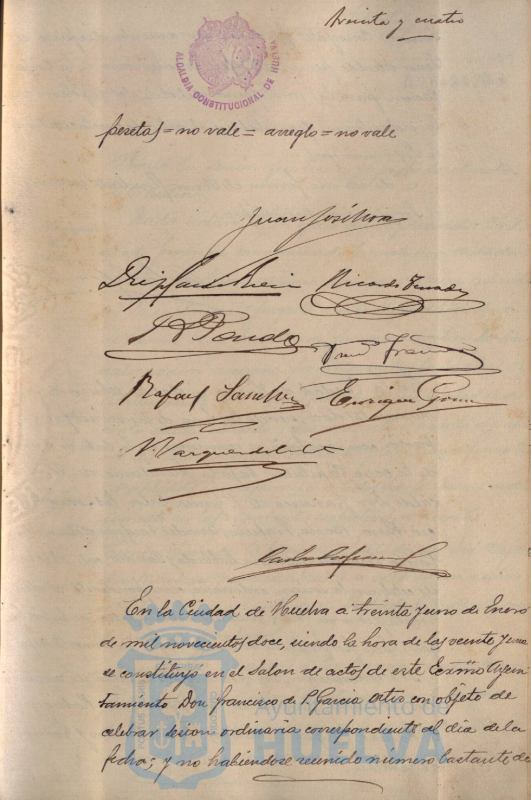 treinta y cuatro
ALCALDIA CONSTITUCIONAL DE HUELVA
pesetas = no vale = arreglo = no vale
Juan José Mora
Ricardo Terrades
Rafael Sanchez Enrique Gomez
En la Ciudad de Huelva a treinta y uno de Enero
de mil novecientos doce, siendo la hora de las veinte y una
se constituyó en el Salon de actos de este Exmo Ayun
tamiento Don Francisco de P. Garcia Ortiz con objeto de
celebrar sesion ordinaria correspondiente al dia de la
fecha; y no habiendose reunido numero bastante de
Ayuntamiento de
HUELVA